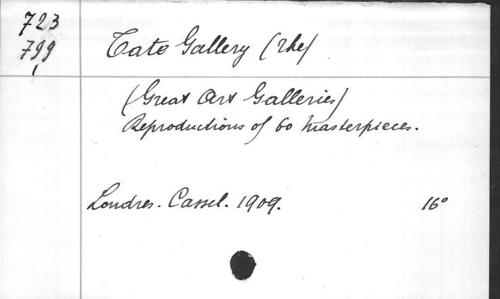 723
799
1
Tate Gallery (The)
(Great Art Galleries)
Reproductions of 60 masterpieces.
Londres. Cassel. 1909. 16°